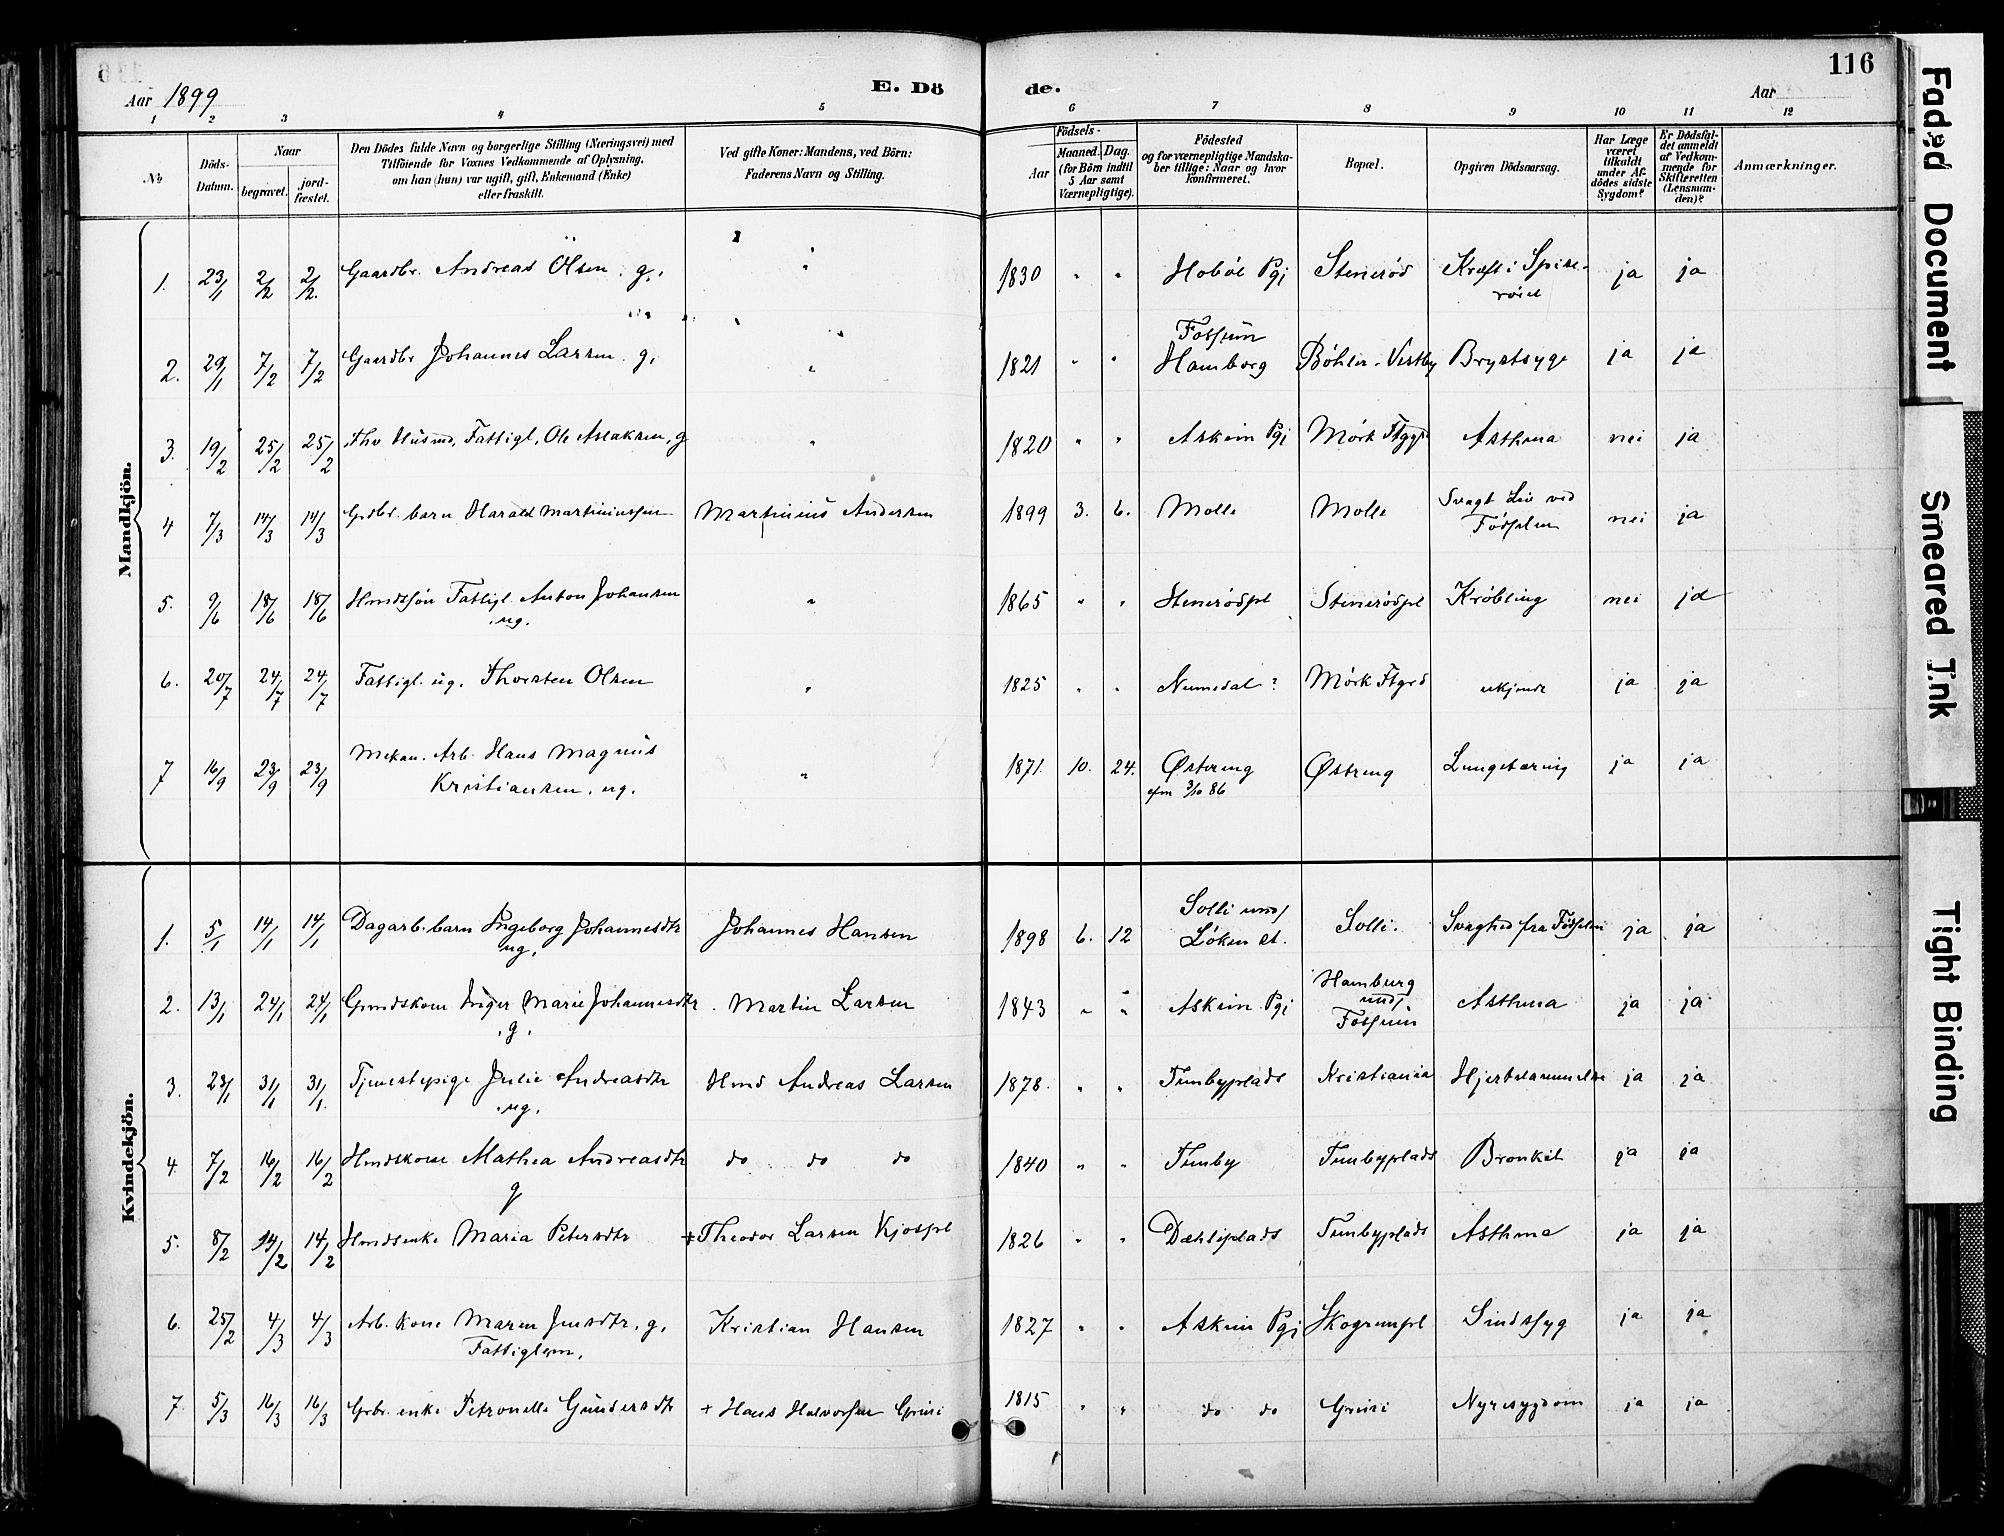 116
Aar 1899
E. Dö
de.
Aar
1 2 3 4 5 6 7 8 9 10 11 12
No
Döds-Datum.
Naar
begravet.
jord-fæstet.
Den Dödes fulde Navn og borgerlige Stilling (Næringsvei) med
Tilföiende for Voxnes Vedkommende af Oplysning,
om han (hun) var ugift, gift, Enkemand (Enke)
eller fraskilt.
Ved gifte Koner: Mandens, ved Börn:
Faderens Navn og Stilling.
Födsels-
Aar
Maaned. Dag.
(for Börn indtil
5 Aar samt
Værnepligtige).
Födested
og for værnepligtige Mandska-
ber tillige: Naar og hvor
konfirmeret.
Bopæl.
Opgiven Dödsaarsag.
Har Læge
været
tilkaldt
under Af-
dödes sidste
Sygdom?
Er Dödsfal-
det anmeldt
af Vedkom-
mende for
Skifteretten
(Lensman-
den)?
Anmærkninger.
Mandkjön.
1. 23/1 2/2 2/2. Gaardbr. Andreas Olsen. g. " 1830 " " Hobøl Pgj Stenerød Kræft i Spise-
røret ja ja
2. 29/1 7/2 7/2 Gaardbr Johannes Larsen. g. " 1821 " " Fossum
Hamborg Bøhler-Vestby Brystsyge ja ja
3. 19/2 25/2 25/2 Fhv Husmd, Fattigl, Ole Aslaksen, g " 1820 " " Askim Pgj Mørk Ftggd Asthma nei ja
4 7/3 14/3 14/3 Grdbr. barn Harald Martiniussen Martinius Andersen 1899 3. 6. Molle Molle Svagt Liv ved
Fødselen nei ja
5. 9/6 18/6 18/6 Hmdssøn Fattigl. Anton Johansen
ug. " 1865 " " Stenerødpl Stenerødpl Krøbling nei ja
6. 20/7 24/7 24/7 Fattigl. ug. Thorsten Olsen " 1825 " " Numedal? Mørk Ftgrd ukjendt ja ja
7 16/9 23/9 23/9 Mekan. Arb. Hans Magnus
Kristiansen. ug. " 1871. 10. 24. Østereng
cfm 3/10 86 Østreng Lungetæring ja ja
Kvindekjön.
1. 5/1 14/1 14/1 Dagarb. barn Ingeborg Johannesdtr
ug. Johannes Hansen 1898 6. 12 Solli und/
Løken st. Solli. Svaghed fra Fødselen ja ja
2. 13/1 24/1 24/1 Grmdskone Inger Marie Johannesdtr
g. Martin Larsen 1843 " " Askim Pgj Hamburg
und/
Fossum Asthma ja ja
3. 23/1 31/1 31/1. Tjenestepige Julie Andreasdtr
ug. Hmd Andreas Larsen 1878. " " Tunbyplads Kristiania Hjertelammelse ja ja
4. 7/2 16/2 16/2 Hmdskone Mathea Andreasdtr
g do do do 1840 " " Tunby Tunbyplads Bronkit ja ja
5. 8/2 14/2 14/2 Hmdsenke Maria Petersdtr + Theodor Larsen Kjospl 1826 " " Dæhliplads Tunbyplads Asthma ja ja
6. 25/2 4/3 4/3 Arb. kone Maren Jensdtr. g.
Fattiglem. Kristian Hansen 1827 " " Askim Pgj Skogrumpl Sindssyg ja ja
7. 5/3 16/3 16/3 Grbr. enke Petronelle Gundersdtr + Hans Halvorsen Grini 1815 " " do do Grini Nyresygdom ja ja
Faded Document
Smeared Ink
Tight Binding